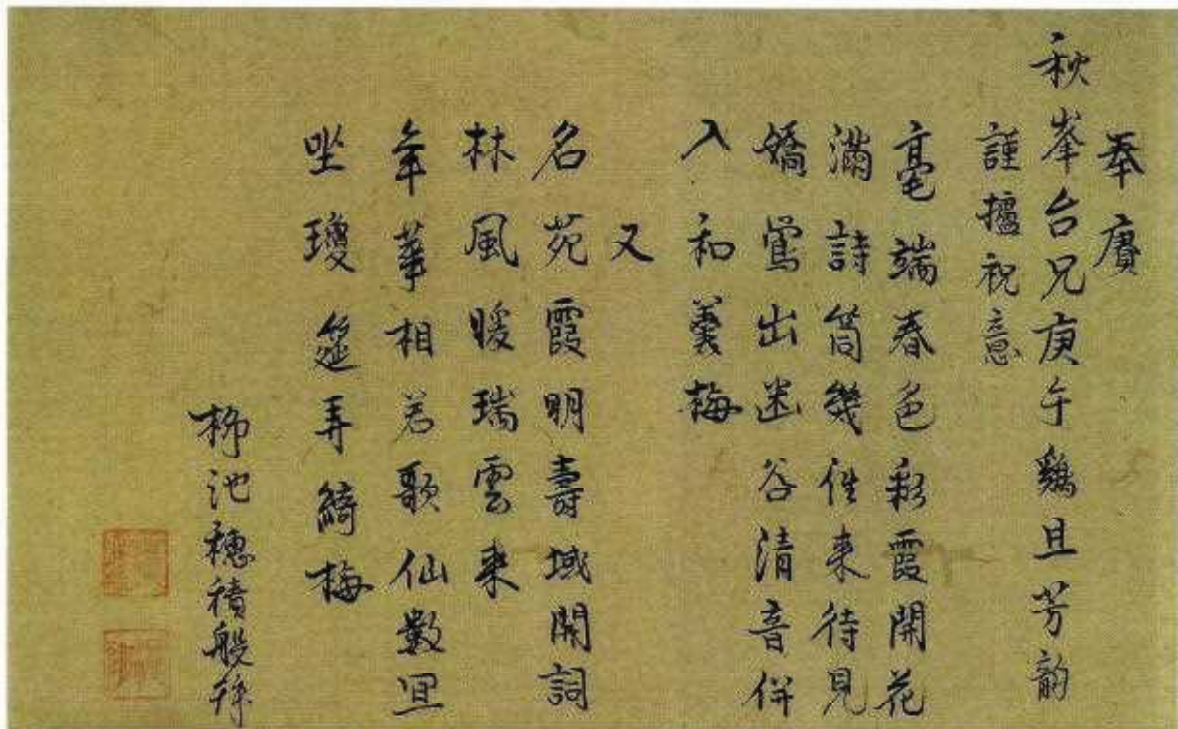 奉賡
秋峯台兄庚午鷄旦芳韵
謹攄祝意
毫端春色彩霞開花
滿詩筒幾往来待見
嬌鶯出幽谷清音併
入和羹梅
又
名苑霞明壽域開詞
林風暖瑞雲来
年華相若歌仙數宜
坐瓊筵弄綺梅
柳池穗積般拜